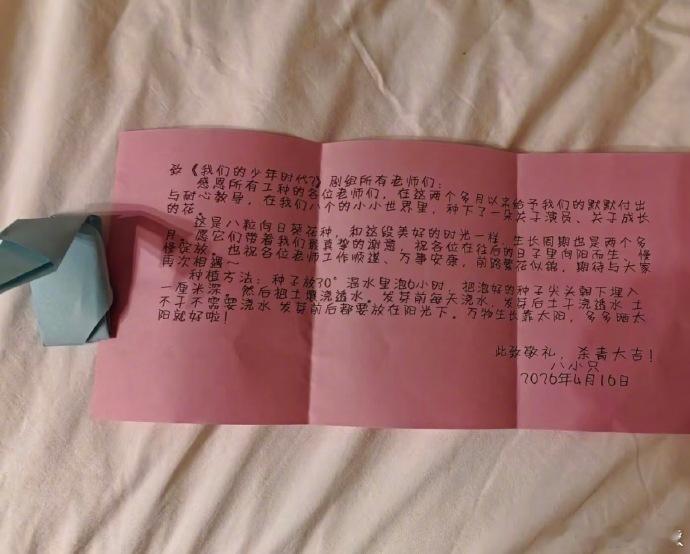 致《我们的少年时代2》剧组所有老师们:
感恩所有工种的各位老师们,在这两个多月以来给予我们的默默付出
与耐心教导,在我们八个的小小世界里,种下了一朵关于演员、关于成长
的花。
这是八粒向日葵花种,和这段美好的时光一样,生长周期也是两个多
月,愿它们带着我们最真挚的谢意,祝各位在往后的日子里向阳而生、慢
慢绽放。也祝各位老师工作顺遂、万事安康,前路繁花似锦,期待与大家
再次相遇~
种植方法:种子放30°温水里泡6小时,把泡好的种子尖头朝下埋入
一厘米深,然后把土壤浇透水。发芽前每天浇水,发芽后土干浇透水 土
不干不需要浇水 发芽前后都要放在阳光下。万物生长靠太阳,多多晒太
阳就好啦!
此致敬礼,杀青大吉!
八小只
2026年4月16日